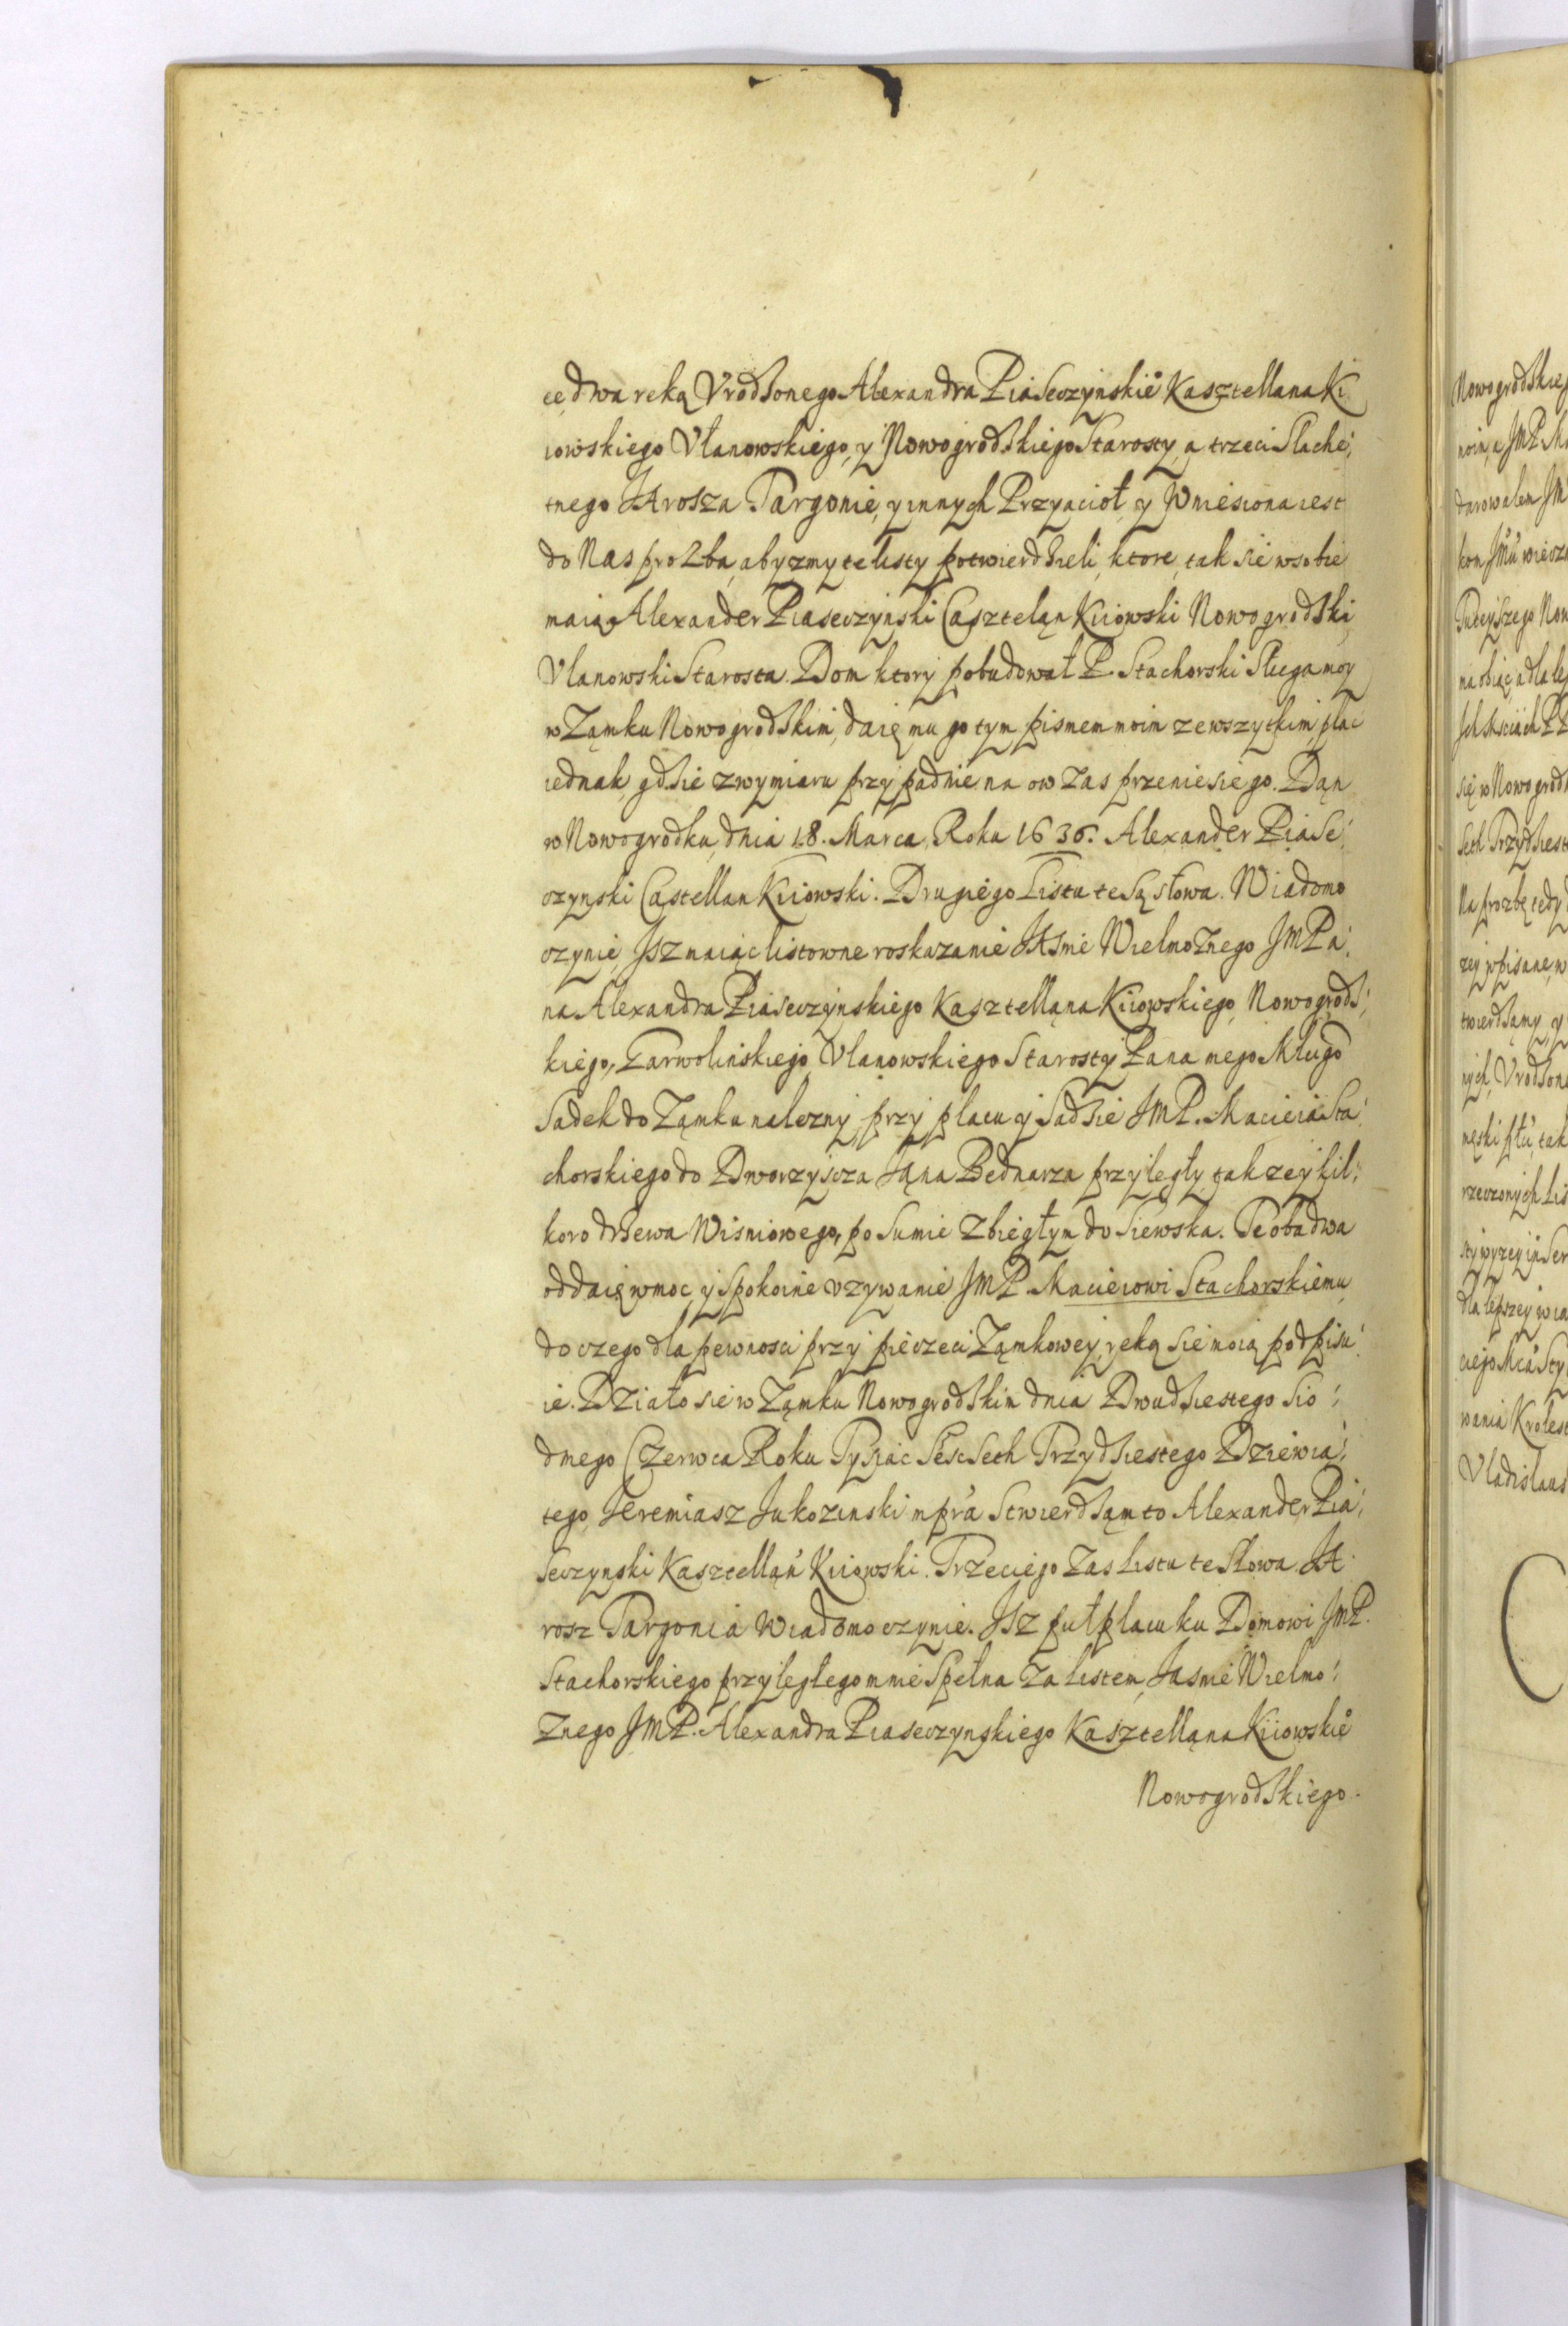 ce dwa reką Vrodzonego Alexandra Piaseczynskie° Kasztellana Ki
iowskiego Vłanowskiego, y Nowogrodskiego Starosty, a trzeci Slache,
tnego Jarosza Targonie, y innych Przyacioł, y Wniesiona iest
do Nas prozba, abyzmy te listy potwierdzieli, ktore, tak sie w sobie
maią. Alexander Piaseczynski Caszteląn Kiiowski Nowogrodski
Vlanowski Starosta. Dom ktory pobudował P. Stachorski Sługa moy
w Ząmku Nowogrodskim, daię mu go tym pismem moim ze wszytkim, plac
iednak gdzie z wymiaru przypadnie, na ow Zas przeniesie go. Dąn
w Nowogrodku, dnia 18. Marca, Roku 1636. Alexander Piase,
czynski Cąstellan Kiiowski. Drugiego Listu te Są słowa. Wiadomo
czynię, Jsz maiąc listowne roskazanie JAsnie Wielmoznego JMPa,
na Alexandra Piaseczynskiego Kasztelląna Kiiowskiego, Nowogrods,
kiego, Zarwolińskiego, Vlanowskiego Starosty Pana mego Mługo
Sadek do Ząmku nalezny, przy placu y Sadzie JMP. Macieia Sta,
chorskiego do Dworzyscza Jąna Bednarza przyległy, takzey kil,
koro drzewa Wisniowego, po Sumie Zbiegłym do Siewska. Te obadwa
oddaię w moc, y Spokoine vzywanie JMP. Macieiowi Stachorskiemu
do czego dla pewnosci przy pieczeci Ząmkowey, reką sie moią podpisu,
ie. Działo sie w Ząmku Nowogrodskim dnia Dwudziestego Sio,
dmego Czerwca Roku Tysiąc Sesc Seth Trzydziestego Dziewią,
tego, Jeremiasz Jukozinski mpra Stwierdząm to Alexander Pia,
seczynski Kasztellań Kiiowski. Trzeciego Zas Listu te Słowa. JA
rosz Targonia Wiadomo czynie. JSZ puł placu ku Domowi JMP.
Stachorskiego przyległego mnie Spełna Za listem Jasnie Wielmo,
Znego JMP. Alexandra Piaseczynskiego Kasztelląna Kiiowskie°
Nowogrodskiego.